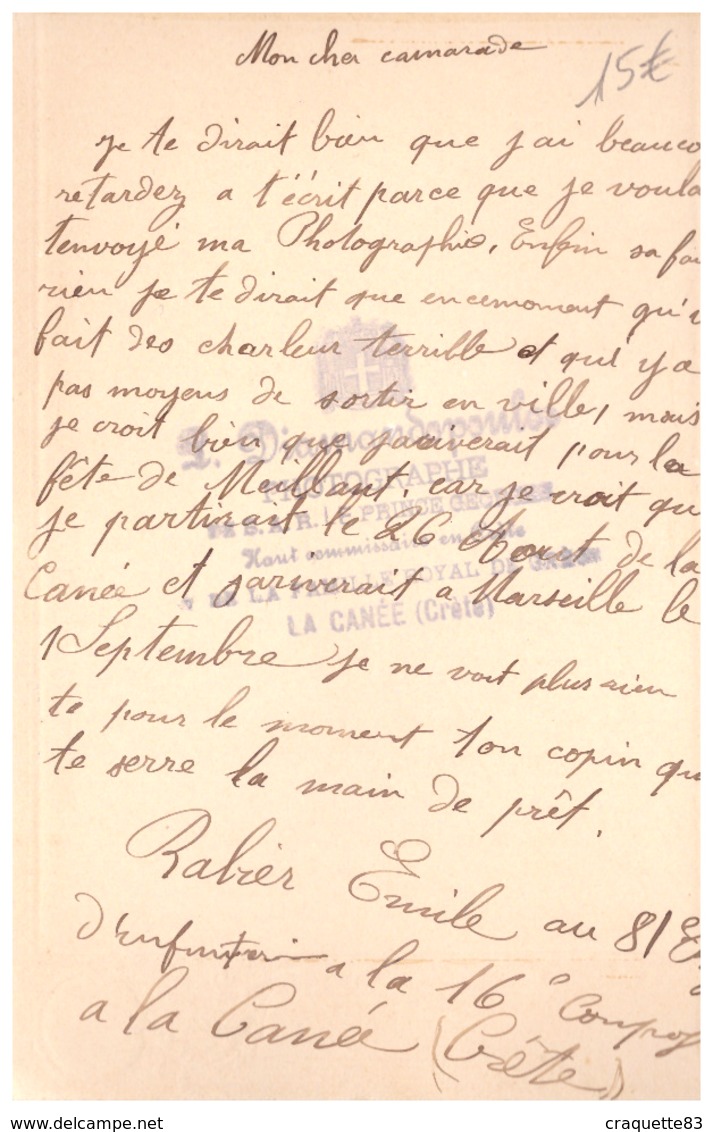 Mon cher camarade
15€
Je te dirait bien que j'ai beauco
retardez a t'écrit parce que je voula
tenvoyé ma Photographie, Enfin sa fai
rien je te dirait que encemoment qu'i
fait des charleur terrible et qui y a
pas moyens de sortir en ville, mais
je croit bien que jariverait pour la
fête de Meillant, car je croit qu
je partirait le 26 Aout de la
Canée et jariverait a Marseille le
1 Septembre je ne voit plus rien
te pour le moment ton copin qui
te serre la main de prêt.
Rabier Emile au 81 
d'Enfanterie a la 16e Compag
a la Canée (Crête)
P. Diamandopoulos
PHOTOGRAPHE
DE S.A.R. LE PRINCE GEORGES
Haut commissaire en Crète
& DE LA FAMILLE ROYAL DE GRÈCE
LA CANÉE (Crète)
craquette83